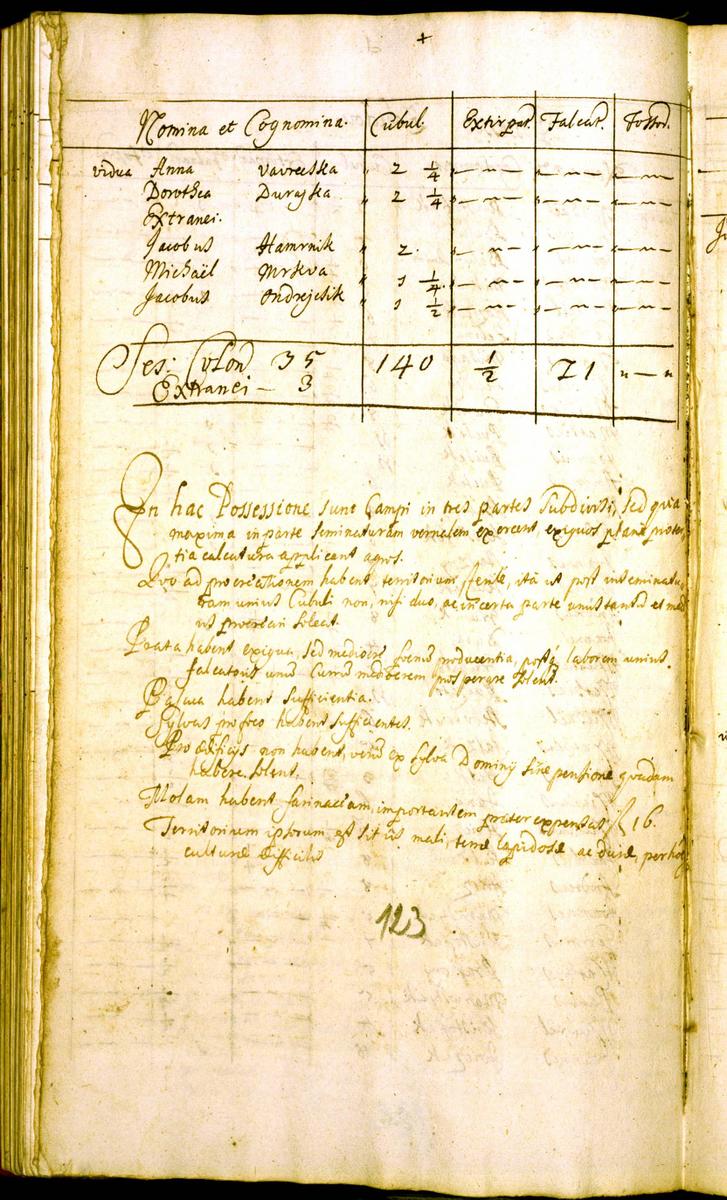 +
Nomina et Cognomina. Cubul. Extirpat. Falcat. Fossor.
vidua Anna Vavrecska 2 1/4 — " — — " — — " —
Dorothea Durajska 2 1/4 — " — — " — — " —
Extranei.
Jacobus Hamrnik " 2. — " — — " — — " —
Michaël Mrkva " 1 1/4 — " — — " — — " —
Jacobus Ondrejcsik " 1 1/2 — " — — " — — " —
Ses: Colon 35 140 1/2 71 " — "
Extranei — 3
In hac Possessione sunt Campi in tres partes Subdivisi, sed quia
maxima in parte seminaturam vernalem exercent, exiguos plane
tia calcatura applicant agros.
Quo ad procreationem habent, territorium sterile, ità ut post inseminatu,
ram unius Cubuli non, nisi duo, ac in certa parte unius et med
us procreari soleat.
Prata habent exigua, sed mediocre foenum producentia, laborem unius
falcatoris unum Currum mediocrem prosperare solent.
Pascua habent sufficientia.
Sylvas pro foco habent sufficientes.
Pro ædificijs non habent, verum ex sylva Dominij sine pensione quadam
habere solent.
Molam habent farinaciam, importantem præter expensas f 16.
Territorium ipsorum est situs mali, terræ lapidosæ ac duræ, per
culturæ difficilis
123